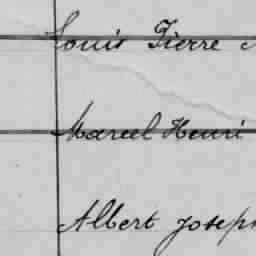 Louis Pierre
Marcel Henri
Albert Joseph